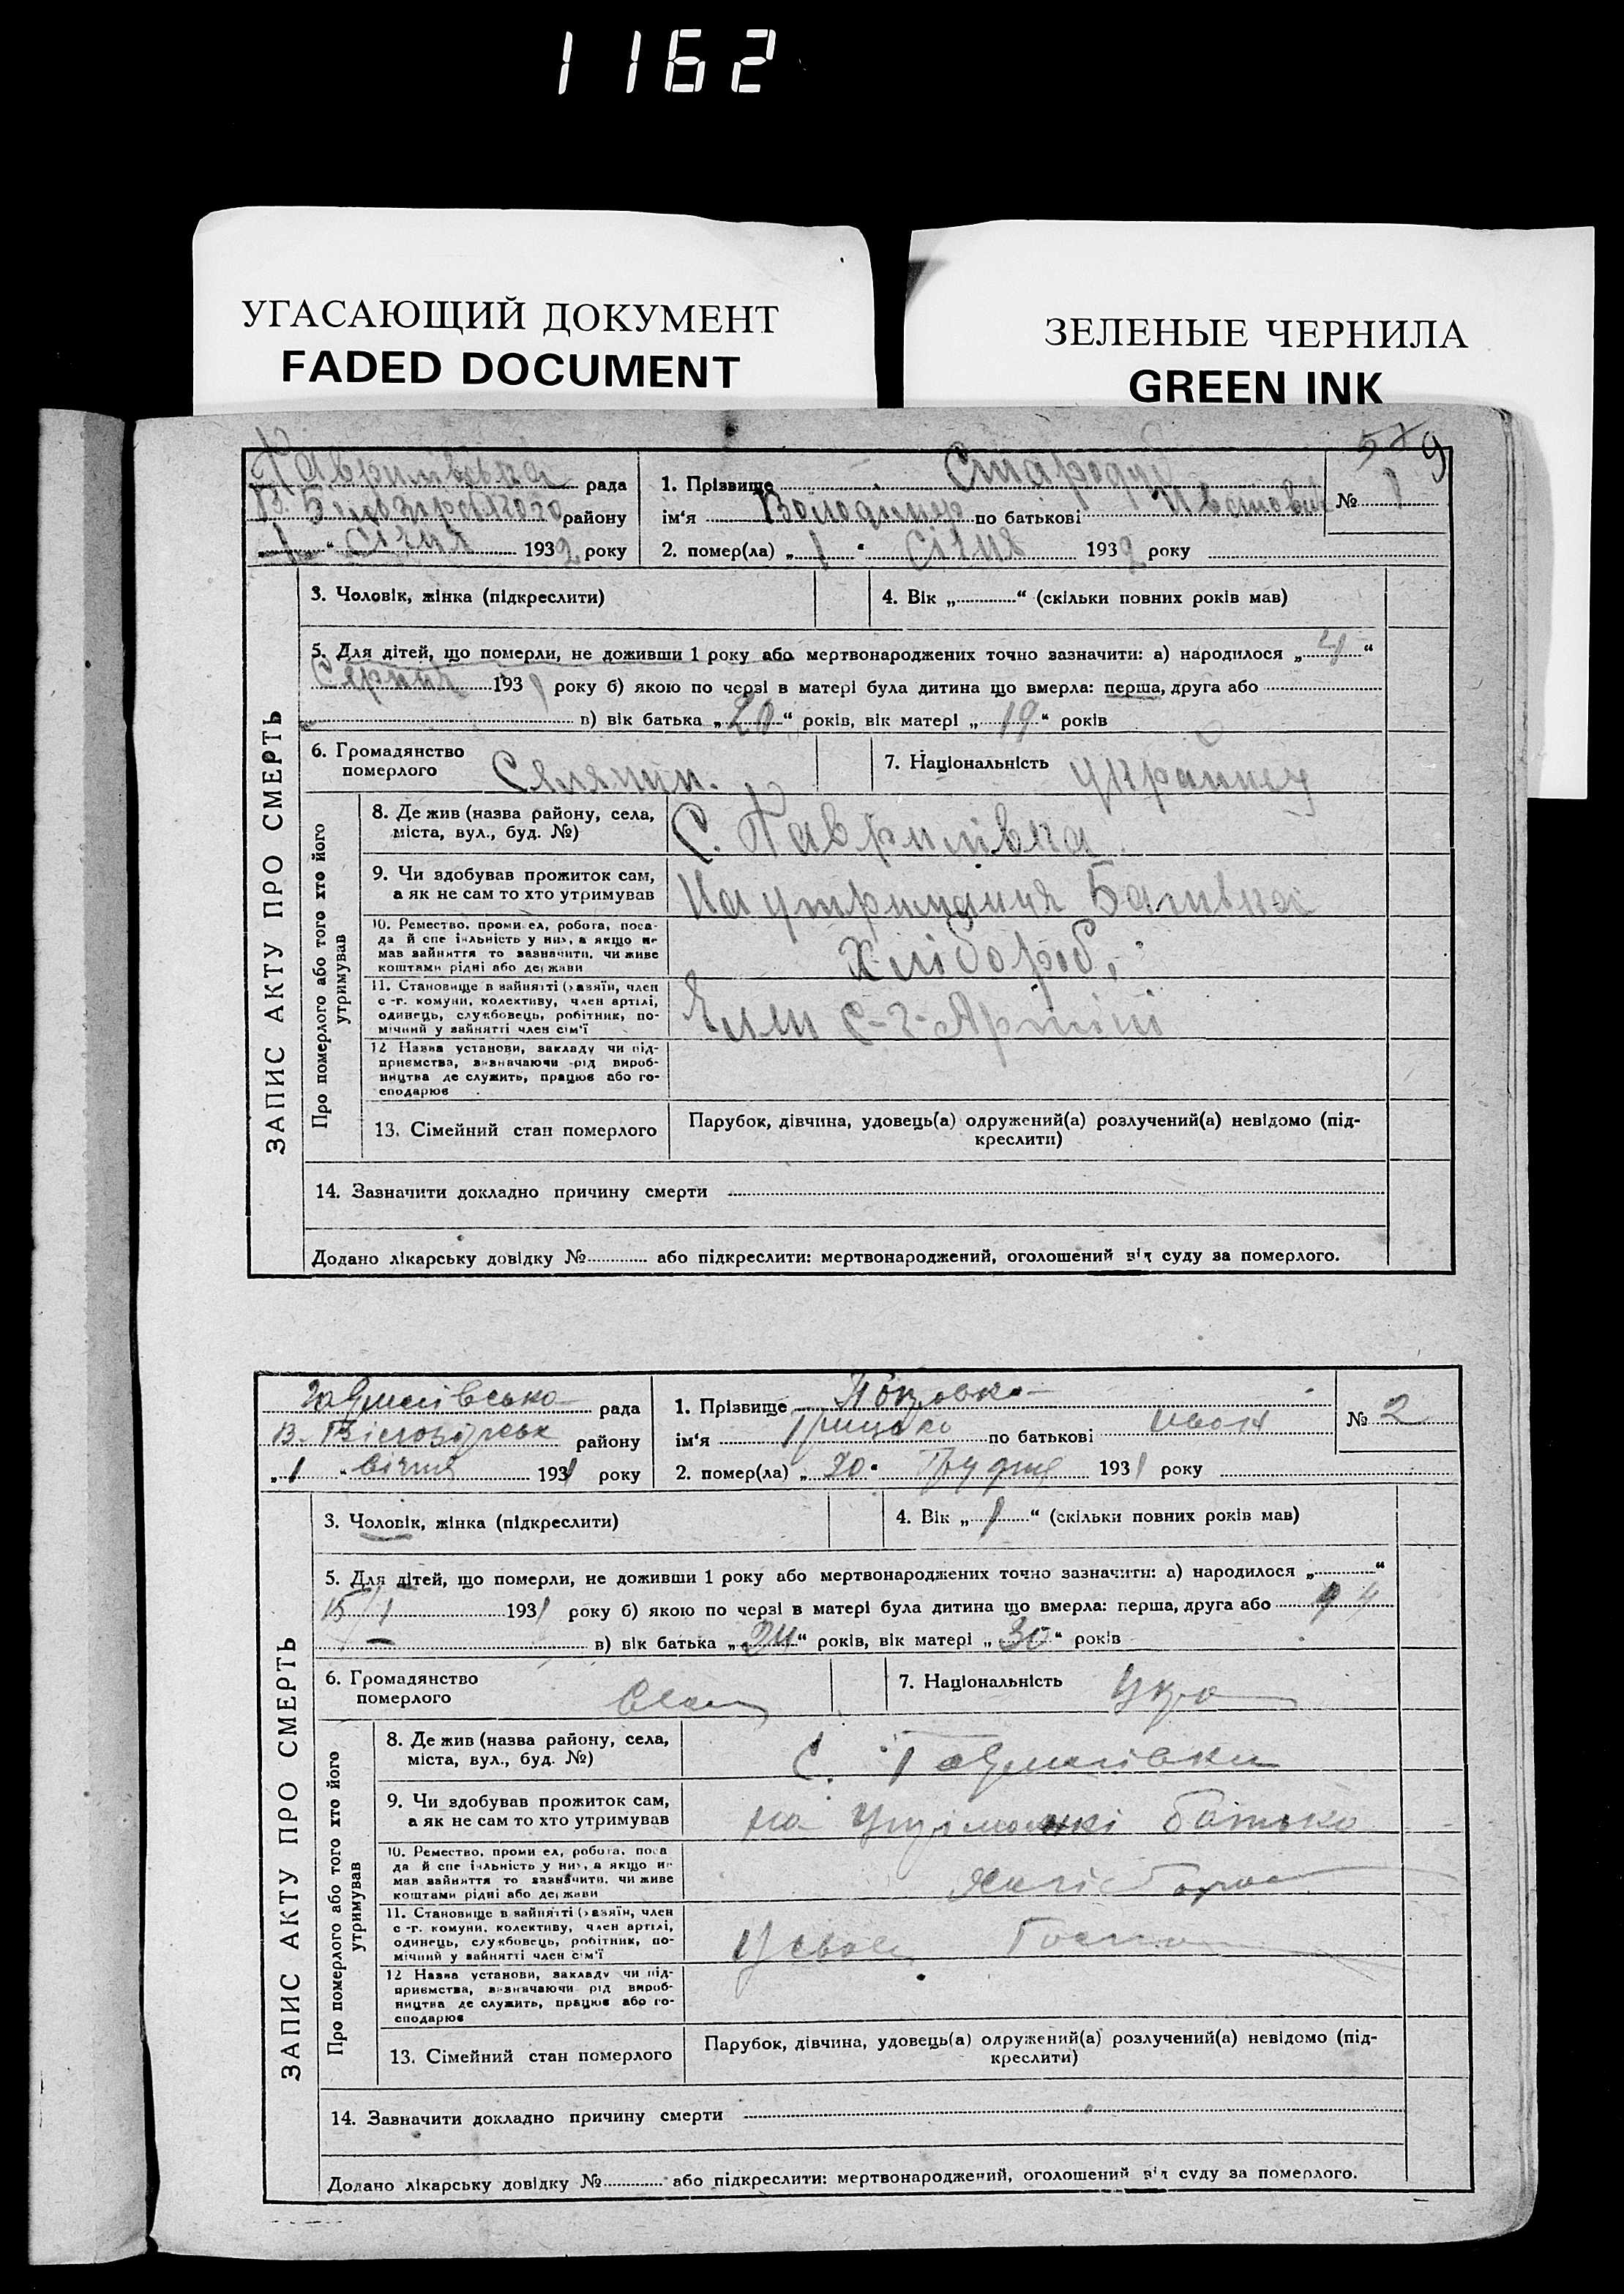 1162
УГАСАЮЩИЙ ДОКУМЕНТ
FADED DOCUMENT
ЗЕЛЕНЫЕ ЧЕРНИЛА
GREEN INK
9
Гаврилівська рада
району
"1" Січня 1932 року
1. Прізвище Стародуб
ім'я Володимир по батькові
2. помер(ла) "1" Січня 1932 року
№ 1
ЗАПИС АКТУ ПРО СМЕРТЬ
3. Чоловік, жінка (підкреслити)
4. Вік „ “ (скільки повних років мав)
5. Для дітей, що померли, не доживши 1 року або мертвонароджених точно зазначити: а) народилося „4“
Серпня 1931 року б) якою по черзі в матері була дитина що вмерла: перша, друга або
в) вік батька „20“ років, вік матері „19“ років
6. Громадянство
померлого Селянин.
7. Національність
Про померлого або того хто його утримував
8. Де жив (назва району, села,
міста, вул., буд. №)
С. Гаврилівка
9. Чи здобував прожиток сам,
а як не сам то хто утримував
На утримання Батька
10. Ремество, промисел, робота, поса-
да й спеціяльність у них, а якщо не
мав зайняття то зазначити, чи живе
коштами рідні або держави
Хлібороб
11. Становище в зайнятті (хазяїн, член
с.-г. комуни, колективу, член артілі,
одинець, службовець, робітник, по-
мічний у зайнятті член сім'ї
Член С-г-Артілі
12 Назва установи, закладу чи під-
приємства, визначаючи рід вироб-
ництва де служить, працює або го-
сподарює
13. Сімейний стан померлого
Парубок, дівчина, удовець(а) одружений(а) розлучений(а) невідомо (під-
креслити)
14. Зазначити докладно причину смерти
Додано лікарську довідку № або підкреслити: мертвонароджений, оголошений від суду за померлого.
Гаврилівсько рада
району
"1" Січня 1931 року
1. Прізвище
ім'я Грицько по батькові Иван
2. помер(ла) „20“ Грудня 1931 року
№ 2
ЗАПИС АКТУ ПРО СМЕРТЬ
3. Чоловік, жінка (підкреслити)
4. Вік „1“ (скільки повних років мав)
5. Для дітей, що померли, не доживши 1 року або мертвонароджених точно зазначити: а) народилося „ “
15/I 1931 року б) якою по черзі в матері була дитина що вмерла: перша, друга або
в) вік батька „24“ років, вік матері „30“ років
6. Громадянство
померлого Селян
7. Національність Укра
Про померлого або того хто його утримував
8. Де жив (назва району, села,
міста, вул., буд. №)
С. Гаврилівки
9. Чи здобував прожиток сам,
а як не сам то хто утримував
на батька
10. Ремество, промисел, робота, поса-
да й спеціяльність у них, а якщо не
мав зайняття то зазначити, чи живе
коштами рідні або держави
11. Становище в зайнятті (хазяїн, член
с.-г. комуни, колективу, член артілі,
одинець, службовець, робітник, по-
мічний у зайнятті член сім'ї
12 Назва установи, закладу чи під-
приємства, визначаючи рід вироб-
ництва де служить, працює або го-
сподарює
13. Сімейний стан померлого
Парубок, дівчина, удовець(а) одружений(а) розлучений(а) невідомо (під-
креслити)
14. Зазначити докладно причину смерти
Додано лікарську довідку № або підкреслити: мертвонароджений, оголошений від суду за померлого.